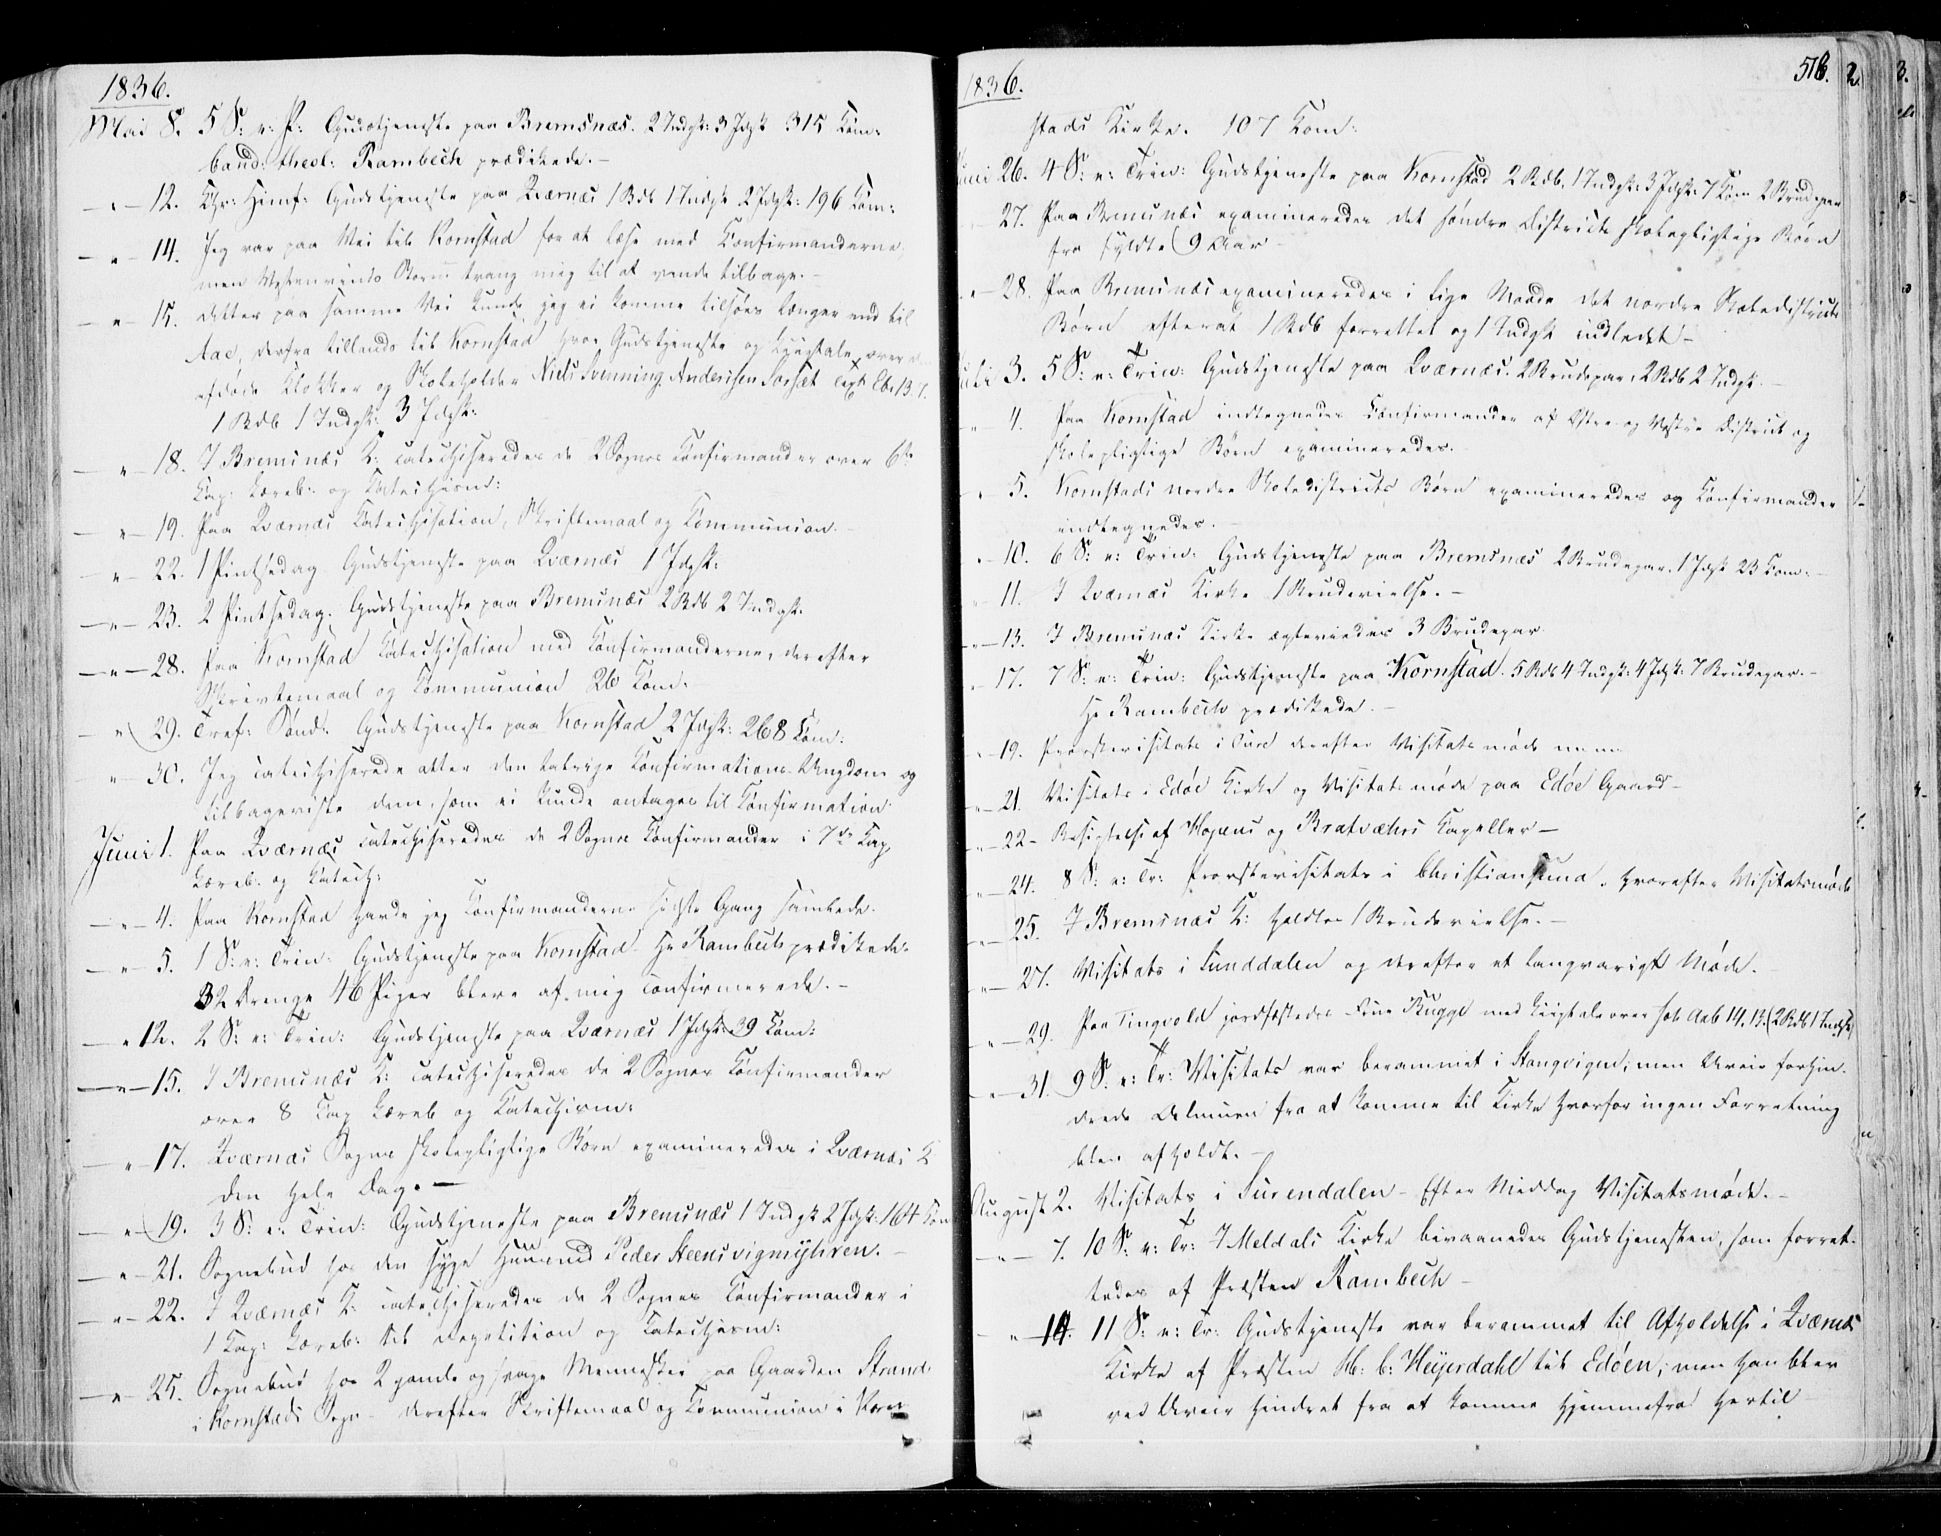 1836.
Mai 8. 5 S: e: P: Gudstjeneste paa Bremsnæs. 2 Indgk: 3 Jdgk 315 Com:
Cand: theol: Rambech prædikede. –
– „ – 12. Chr: Himf: Gudstjeneste paa Qværnæs 1 Bdb 1 Indgk 2 Jdgk: 196 Com:
– „ – 14. Jeg var paa Vei til Kornstad for at læse med Confirmanderne,
men Vestenvinds Storm tvang mig til at vende tilbage. –
– „ – 15. Atter paa samme Vei kunde jeg ei komme tilsøes længer end til
Aae, derfra tillands til Kornstad hvor Gudstjeneste og Liigtale over
afdøde Klokker og Skoleholder Niels Svenning Andersen Sorset Text Eb. 13. 7.
1 Bdb 1 Indgk: 3 Jdgk:
– „ – 18. I Bremsnæs K: catechiseredes de 2 Sognes Confirmander over 6te
Cap: Læreb: og Catechism:
– „ – 19. Paa Qværnæs Catechisation, Skriftemaal og Communion. –
– „ – 22. 1 Pintsedag Gudstjeneste paa Qværnæs 1 Jdgk:
– „ – 23. 2 Pintsedag. Gudstjeneste paa Bremsnæs 2 Bdb 2 Indgk.
– „ – 28. Paa Kornstad Catechisation med Confirmanderne, derefter
Skriftemaal og Communion 26 Com:
– „ 29. Tref: Sønd: Gudstjeneste paa Kornstad 2 Jdgk: 268 Com:
– „ – 30. Jeg catechiserede atter den talrige Confirmations-Ungdom og
tilbageviste dem, som ei kunde antages til Confirmation.
Juni 1. Paa Qværnæs catechiseredes de 2 Sognes Confirmander i 7de Cap.
Læreb: og Catech:
– „ – 4. Paa Kornstad havde jeg Confirmanderne sidste Gang samlede.
– „ – 5. 1 S: e: Trin: Gudstjeneste paa Kornstad. Hr Rambech prædikede.
32 Drenge 46 Piger bleve af mig confirmerede. –
– „ 12. 2 S: e: Trin: Gudstjeneste paa Qværnæs 1 Jdgk: 39 Com:
– „ – 15. I Bremsnæs K: catechiseredes de 2 Sognes Confirmander
over 8 Cap Læreb og Catechism:
– „ – 17. Qværnæs Sogns skolepligtige Børn examineredes i Qværnæs K
den hele Dag. –
– „ – 19. 3 S: e: Trin: Gudstjeneste paa Bremsnæs 1 Indgk 2 Jdgk: 164 Com
– „ – 21. Sognebud hos den syge Huusmd Peder Steensvigmyhren. –
– „ – 22. I Qværnæs K: catechiseredes de 2 Sognes Confirmander i
1 Cap: Læreb: til Repetition og Catechism:
– „ – 25. Sognebud hos 2 gamle og svage Mennesker paa Gaarden Strand
i Kornstads Sogn – derefter Skriftemaal og Communion i Korn-
1836.
518.
stads Kirke. 107 Com:
Juni 26. 4 S: e: Trin: Gudstjeneste paa Kornstad 2 Bdb. 1 Indgk: 3 Jdgk: 7 Com 2 Brudepar
27. Paa Bremsnæs examineredes det søndre Districts skolepligtige Børn
fra fyldte 9 Aar –
– „ – 28. Paa Bremsnæs examineredes i lige Maade det nordre Skoledistricts
Børn efterat 1 Bdb forrettet og 1 Indgk indledet –
Juli 3. 5 S: e: Trin: Gudstjeneste paa Qværnæs. 2 Brudepar. 2 Bdb 2 Indgk. –
– „ – 4. Paa Kornstad indtegnedes Confirmander af Østre og Vestre District og
skolepligtige Børn examineredes.
5. Kornstads nordre Skoledistricts Børn examineredes og Confirmander
indtegnedes. –
„ – 10. 6 S: e: Trin: Gudstjeneste paa Bremsnæs 2 Brudepar. 1 Jdgk 23 Com: –
11. I Qværnæs Kirke 1 Brudevielse. –
– „ – 13. I Bremsnæs Kirke ægteviedes 3 Brudepar
– 17. 7 S: e: Trin: Gudstjeneste paa Kornstad. 5 Bdb 4 Indgk: 4 Jdgk: 7 Brudepar. –
Hr Rambech prædikede. –
– 19. Provstevisitats i derefter Visitatsmøde
– „ – 21. Visitats i Edøe Kirke og Visitatsmøde paa Edøe Gaard –
– „ – 22 – Besigtelse af Hopens og Bratværs Capeller –
– „ – 24. 8 S: e: Tr: Provstevisitats i Christiansund, hvorefter Visitatsmøde
– „ – 25. I Bremsnæs K: holdtes 1 Brudevielse. –
– „ – 27. Visitats i Sunddalen og derefter et langvarigt Møde.
– „ – 29. Paa Tingvold jordfæstedes Bugge med Liigtale over Joh. Aab 14. 13. (2 Bdb 1 Indgk)
– „ – 31. 9 S. e: Tr: Visitats var berammet i Stangvigen; men Uveir forhin-
drede Almuen fra at komme til Kirke hvorfor ingen Forretning
blev afholdt. –
August 2. Visitats i Surendalen – Efter Middag Visitatsmøde. –
– „ – 7. 10 S: e: Tr: I Meldals Kirke bivaanedes Gudstjenesten, som forret-
tedes af Præsten Rambech –
– „ – 14. 11 S: e: Tr: Gudstjeneste var berammet til Afholdelse i Qværnæs
Kirke af Præsten Hr. C: Heyerdahl til Edøen; men han blev
ved Uveir hindret fra at komme hjemmefra hertil